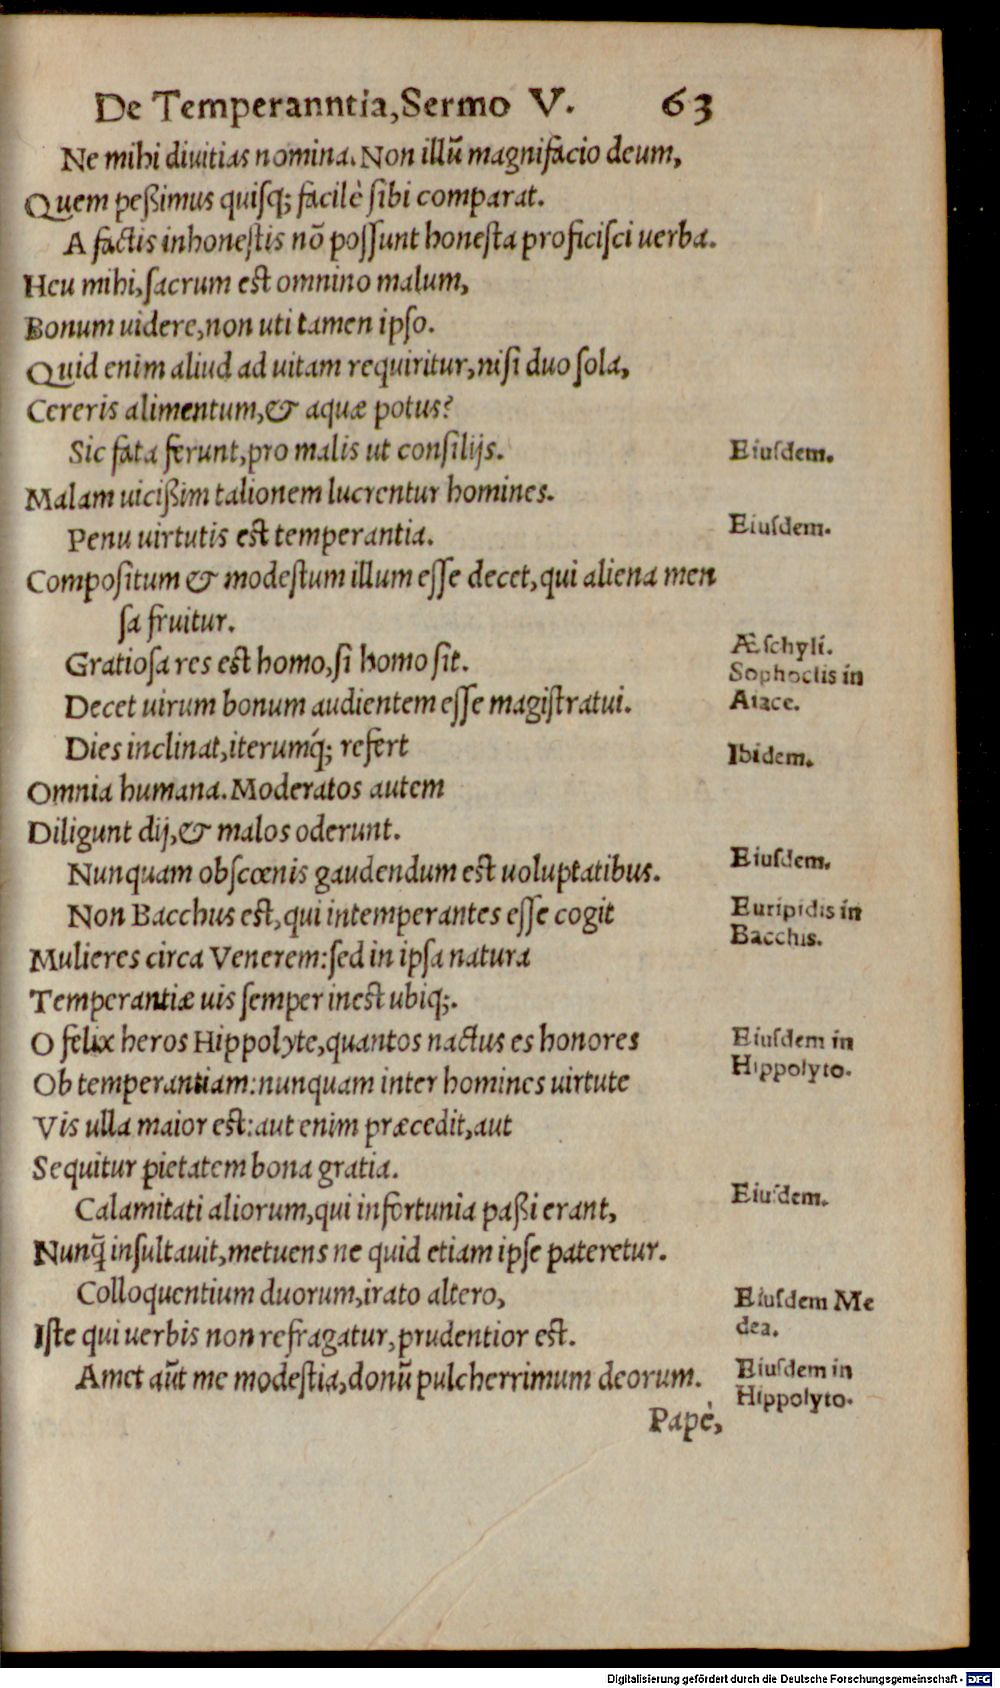 De Temperanntia, Sermo V. 63
Ne mihi diuitias nomina. Non illũ magnifacio deum,
Quem peßimus quisq; facilè sibi comparat.
A factis inhonestis nõ possunt honesta proficisci uerba.
Heu mihi, sacrum est omnino malum,
Bonum uidere, non uti tamen ipso.
Quid enim aliud ad uitam requiritur, nisi duo sola,
Cereris alimentum, & aquæ potus?
Sic fata ferunt, pro malis ut consilijs. Eiusdem.
Malam uicißim talionem lucrentur homines.
Penu uirtutis est temperantia. Eiusdem.
Compositum & modestum illum esse decet, qui aliena men
sa fruitur.
Gratiosa res est homo, si homo sit. Æschyli.
Sophoclis in
Decet uirum bonum audientem esse magistratui. Aiace.
Dies inclinat, iterumq́; refert Ibidem.
Omnia humana. Moderatos autem
Diligunt dij, & malos oderunt.
Nunquam obscœnis gaudendum est uoluptatibus. Eiusdem.
Non Bacchus est, qui intemperantes esse cogit Euripidis in
Bacchis.
Mulieres circa Venerem: sed in ipsa natura
Temperantiæ uis semper inest ubiq;.
O felix heros Hippolyte, quantos nactus es honores Eiusdem in
Hippolyto.
Ob temperantiam: nunquam inter homines uirtute
Vis ulla maior est: aut enim præcedit, aut
Sequitur pietatem bona gratia.
Calamitati aliorum, qui infortunia paßi erant, Eiusdem.
Nunq̃ insultauit, metuens ne quid etiam ipse pateretur.
Colloquentium duorum, irato altero, Eiusdem Me
dea.
Iste qui uerbis non refragatur, prudentior est.
Amet aũt me modestia, donũ pulcherrimum deorum. Eiusdem in
Hippolyto.
Papè,
Digitalisierung gefördert durch die Deutsche Forschungsgemeinschaft - DFG